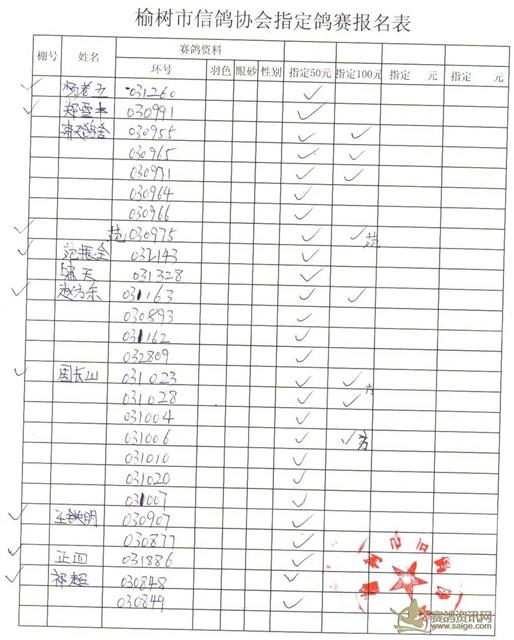 榆树市信鸽协会指定鸽赛报名表
棚号 姓名 赛鸽资料
环号 羽色 眼砂 性别 指定50元 指定100元 指定 元 指定 元
031260
030991
030955
030965
030971
030964
030966
030975
032143
天 031328
031163
030893
031162
032809
周长山 031023
031028
031004
031006
031010
031020
031007
030907
030877
031886
祁超 030848
030849
赛鸽资讯网
www.saige.com